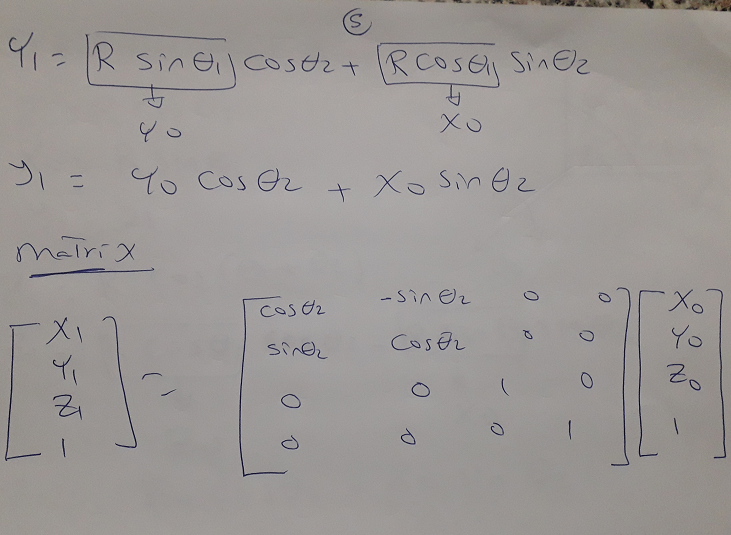 (5)
Y1 = R sinθ1 cosθ2 + R cosθ1 sinθ2
↓ ↓
Y0 X0
y1 = Y0 cosθ2 + X0 sinθ2
matrix
[X1] = [cosθ2 -sinθ2 0 0] [X0]
[Y1] [sinθ2 cosθ2 0 0] [Y0]
[Z1] [0 0 1 0] [Z0]
[1] [0 0 0 1] [1]